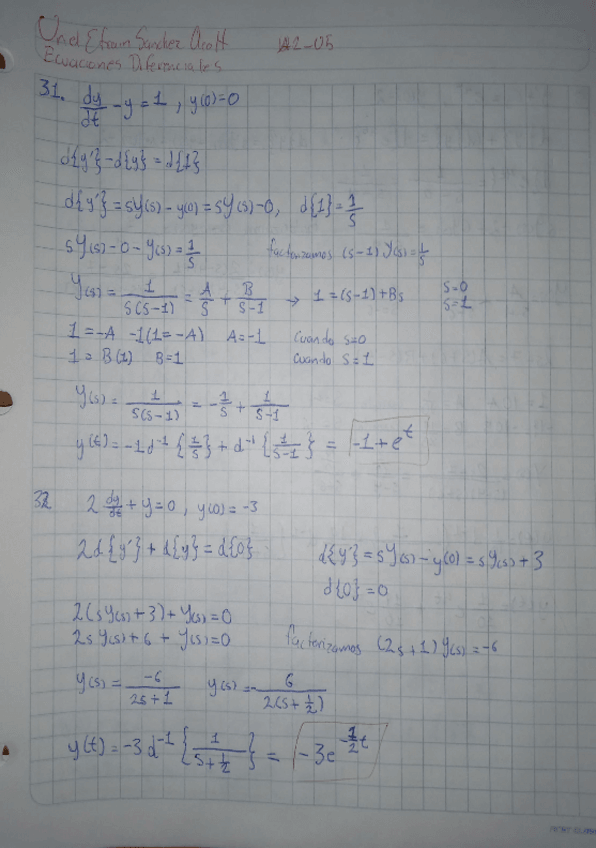 Ecuaciones Diferenciales
31. dy/dt - y = 1 , y(0)=0
d{y'} - d{y} = d{1}
d{y'} = sY(s) - y(0) = sY(s) - 0, d{1} = 1/s
sY(s) - 0 - Y(s) = 1/s factorizamos (s-1) Y(s) = 1/s
Y(s) = 1/(s(s-1)) = A/s + B/(s-1) → 1 = (s-1) + Bs s=0
s=1
1 = -A -1(1 = -A) A = -1 Cuando s=0
1 = B(1) B = 1 Cuando s=1
Y(s) = 1/(s(s-1)) = -1/s + 1/(s-1)
y(t) = -1 d⁻¹ {1/s} + d⁻¹ {1/(s-1)} = -1 + e^t
32 2 dy/dt + y = 0 , y(0) = -3
2d{y'} + d{y} = d{0} d{y'} = sY(s) - y(0) = sY(s) + 3
d{0} = 0
2(sY(s) + 3) + Y(s) = 0
2sY(s) + 6 + Y(s) = 0 factorizamos (2s+1) Y(s) = -6
Y(s) = -6/(2s+1) Y(s) = - 6/(2(s+1/2))
y(t) = -3 d⁻¹ {1/(s+1/2)} = -3e^(-1/2 t)